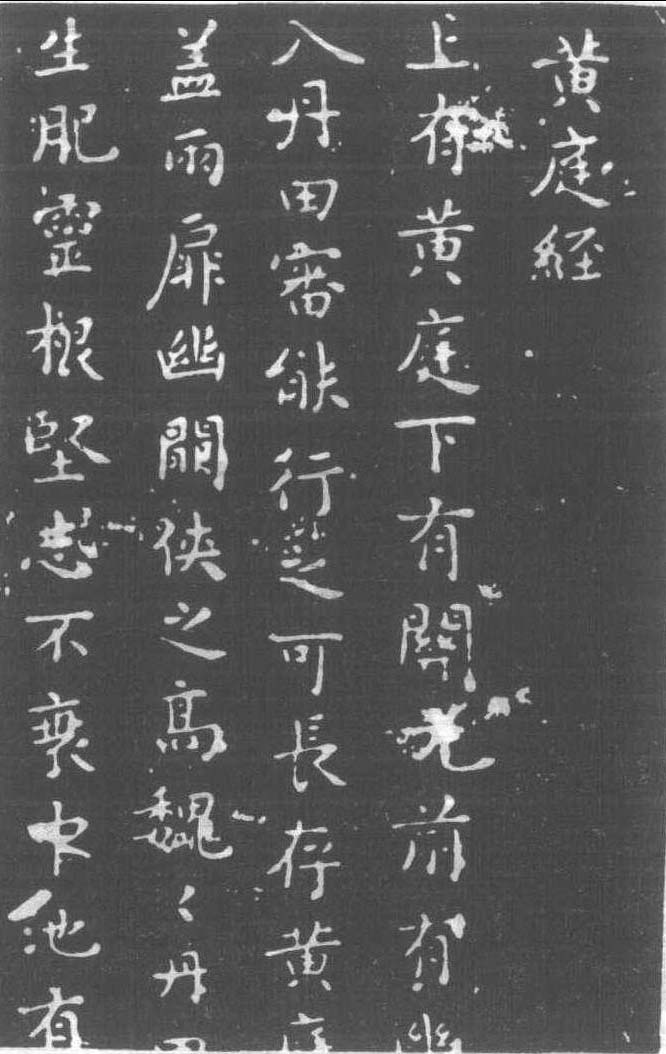 黄庭经
上有黄庭下有關元前有幽
入丹田審能行之可長存黄庭
盖兩扉幽關俠之高魏〻丹田
生肥靈根堅志不衰中池有